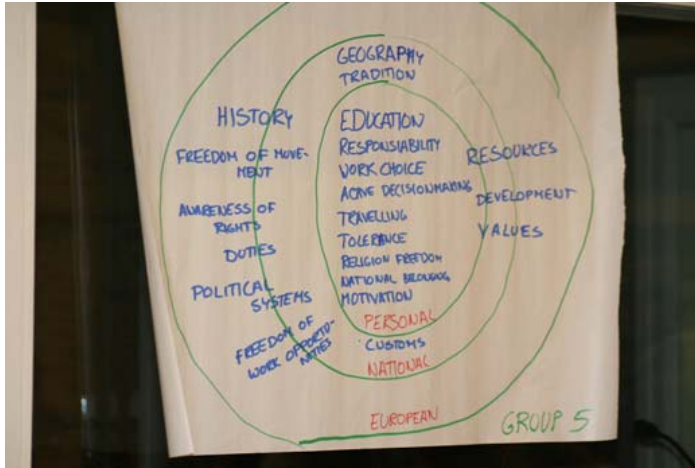 GEOGRAPHY
TRADITION
HISTORY
FREEDOM OF MOVE-
MENT
AWARENESS OF
RIGHTS
DUTIES
POLITICAL
SYSTEMS
FREEDOM OF
WORK OPPORTU-
NITIES
EDUCATION
RESPONSIABILITY
WORK CHOICE
ACTIVE DECISIONMAKING
TRAVELLING
TOLERANCE
RELIGION FREEDOM
NATIONAL BELONGING
MOTIVATION
PERSONAL
CUSTOMS
NATIONAL
EUROPEAN
RESOURCES
DEVELOPMENT
VALUES
GROUP 5